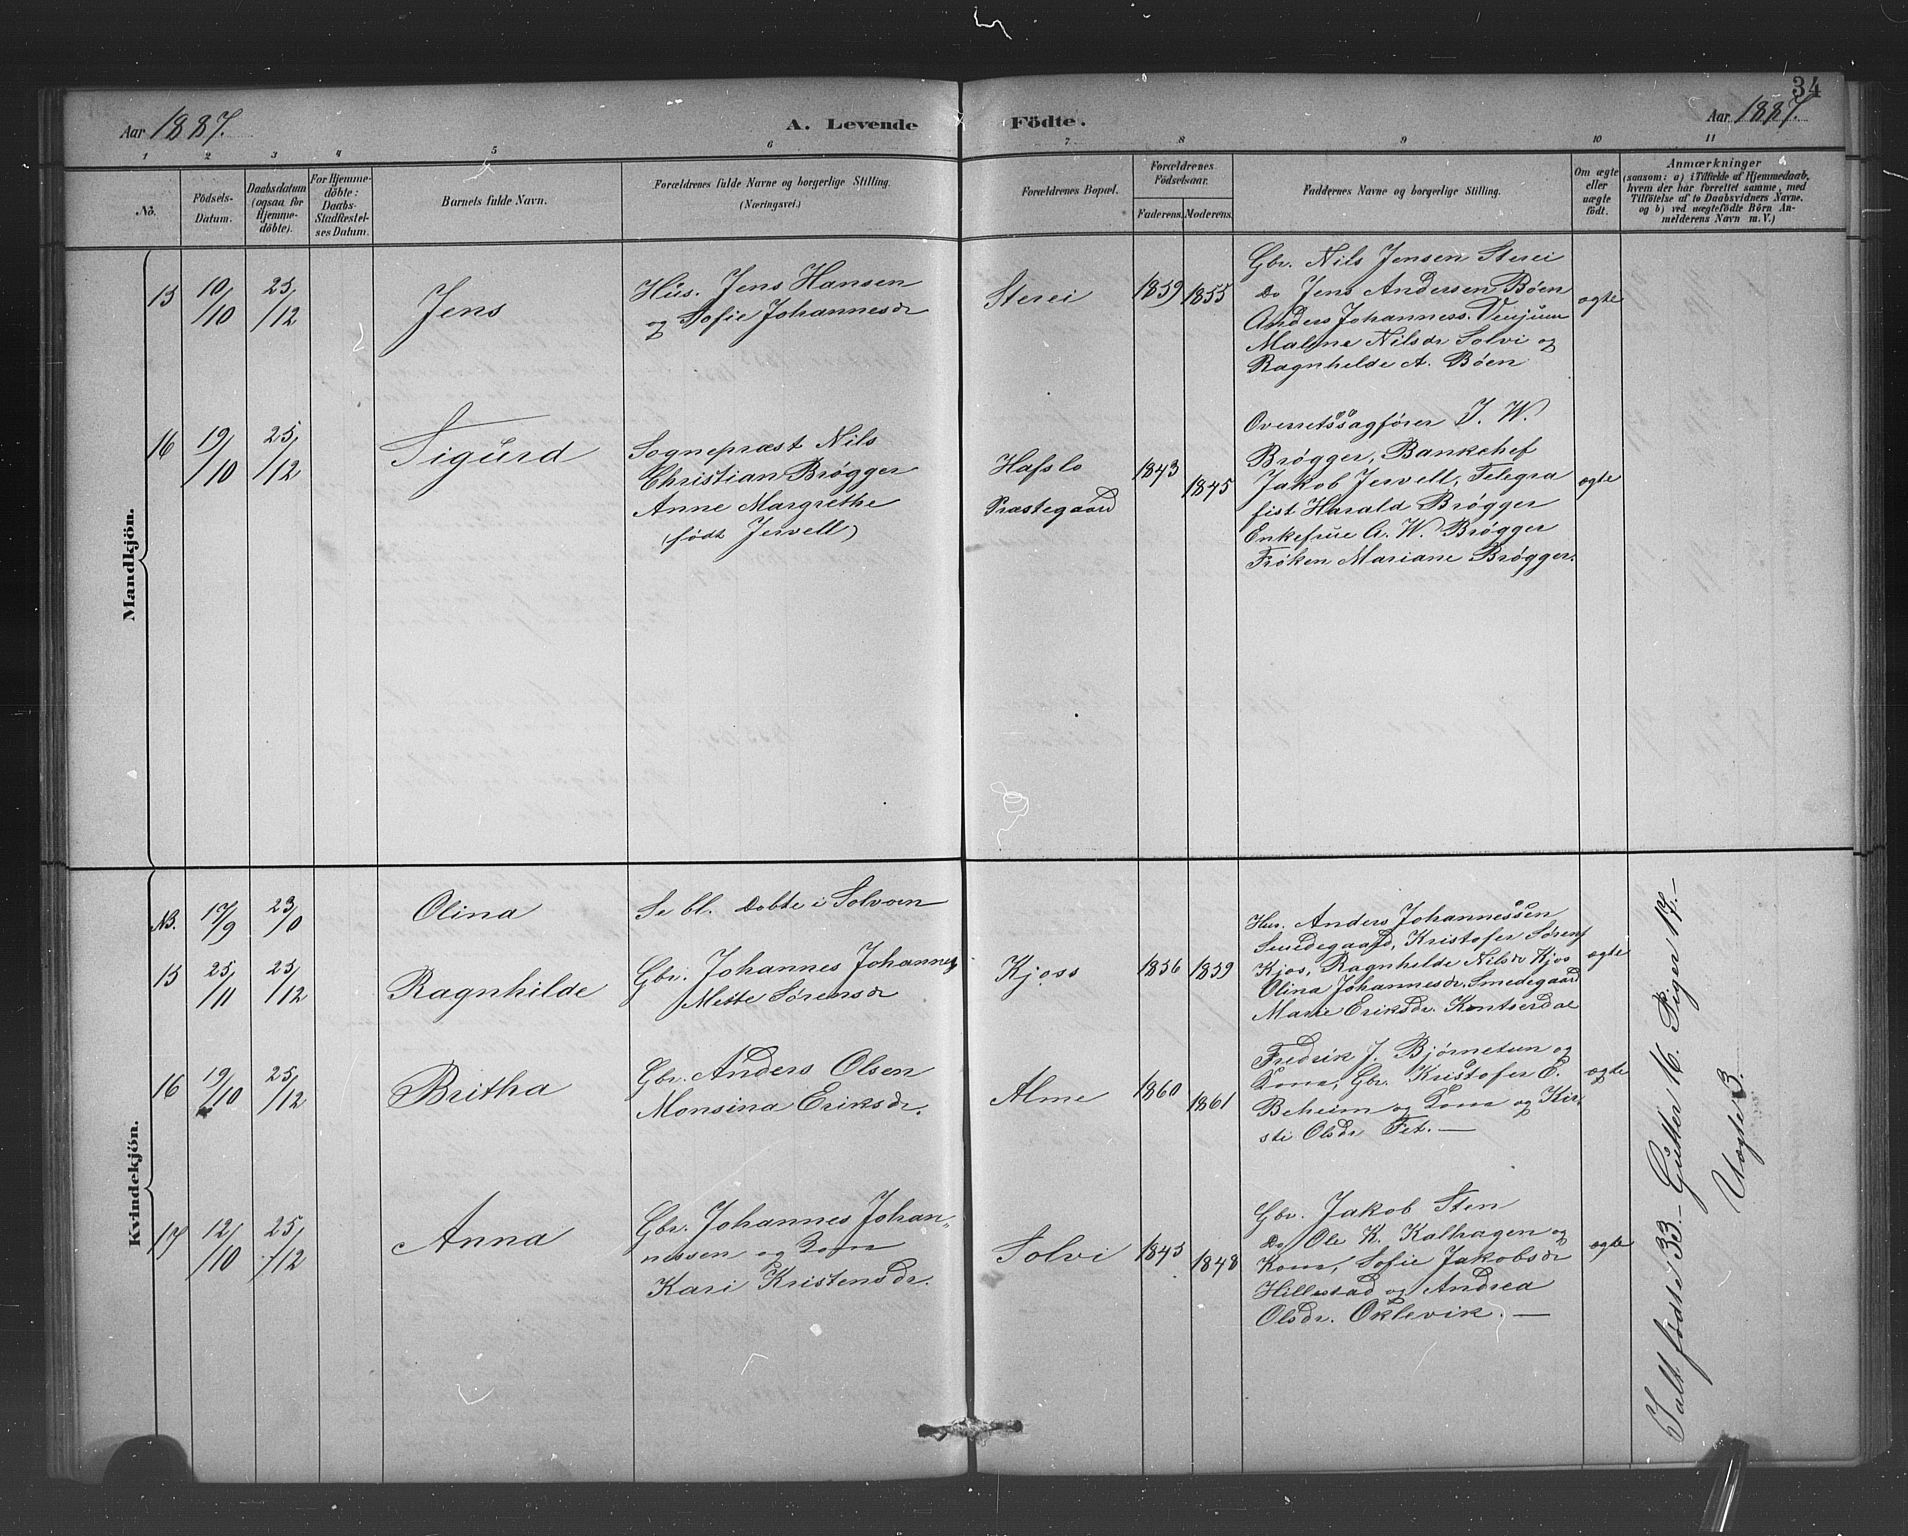 34
Aar 1887. A. Levende Födte. Aar 1887.
1 2 3 4 5 6 7 8 9 10 11
No.
Födsels-
Datum.
Daabsdatum
(ogsaa for
Hjemme-
döbte).
For Hjemme-
döbte:
Daabs-
Stadfæstel-
ses Datum.
Barnets fulde Navn.
Forældrenes fulde Navne og borgerlige Stilling.
(Næringsvei.)
Forældrenes Bopæl.
Forældrenes
Födselsaar.
Faderens. Moderens.
Faddernes Navne og borgerlige Stilling.
Om ægte
eller
uægte
födt.
Anmærkninger
(saasom: a) i Tilfælde af Hjemmedaab,
hvem der har forrettet samme, med
Tilföielse af to Daabsvidners Navne.
og b) ved uægtefödte Börn An-
melderens Navn m. V.)
Mandkjön.
15 10/10 25/12 Jens
Hus. Jens Hansen
og Sofie Johannesdr
Sterei 1859 1855
Gbr. Nils Jensen Sterei
Do Jens Andersen Bøen
Anders Johanness. Venjum
Malene Nilsdr Solvi og
Ragnhilde A. Bøen
ægte
16 19/10 25/12 Sigurd
Sognepræst Nils
Christian Brøgger
Anne Margrethe
(født Jervell)
Hafslo
Præstegaard
1843 1845
Overretssagfører J. W.
Brøgger, Bankchef
Jakob Jervell, Telegra
fist Harald Brøgger
Enkefrue A. W. Brøgger
Frøken Mariane Brøgger.
ægte
Kvindekjön.
NB. 17/9 23/10 Olina
Se bl. Døbte i Solvorn
15 25/11 25/12 Ragnhilde
Gbr. Johannes Johannes
Mette Sørensdr
Kjoss 1856 1859
Hus. Anders Johannessen
Smedegaard, Kristofer Sørens
Kjos, Ragnhilde Nilsdr Kjos
Olina Johannesdr. Smedegaard
Marie Eriksdr.
ægte
16 19/10 25/12 Britha
Gbr. Anders Olsen
Monsina Eriksdr.
Alme 1860 1861
Fredrik J. Bjørnetun og
Kona, Gbr. Kristofer E.
Beheim og Kona og Kir
sti Olsdr Fet. —
ægte
17 12/10 25/12 Anna
Gbr. Johannes Johan-
nessen og Kona
Kari Kristensdr.
Solvi 1845 1848
Gbr. Jakob Sten
Do Ole K. Kalhagen og
Kona, Sofie Jakobsdr
Hillestad og Andrea
Olsdr. Oklevik. —
ægte
Talt fødte 33. — Gutter 16. Piger 17. —
Uægte 3.